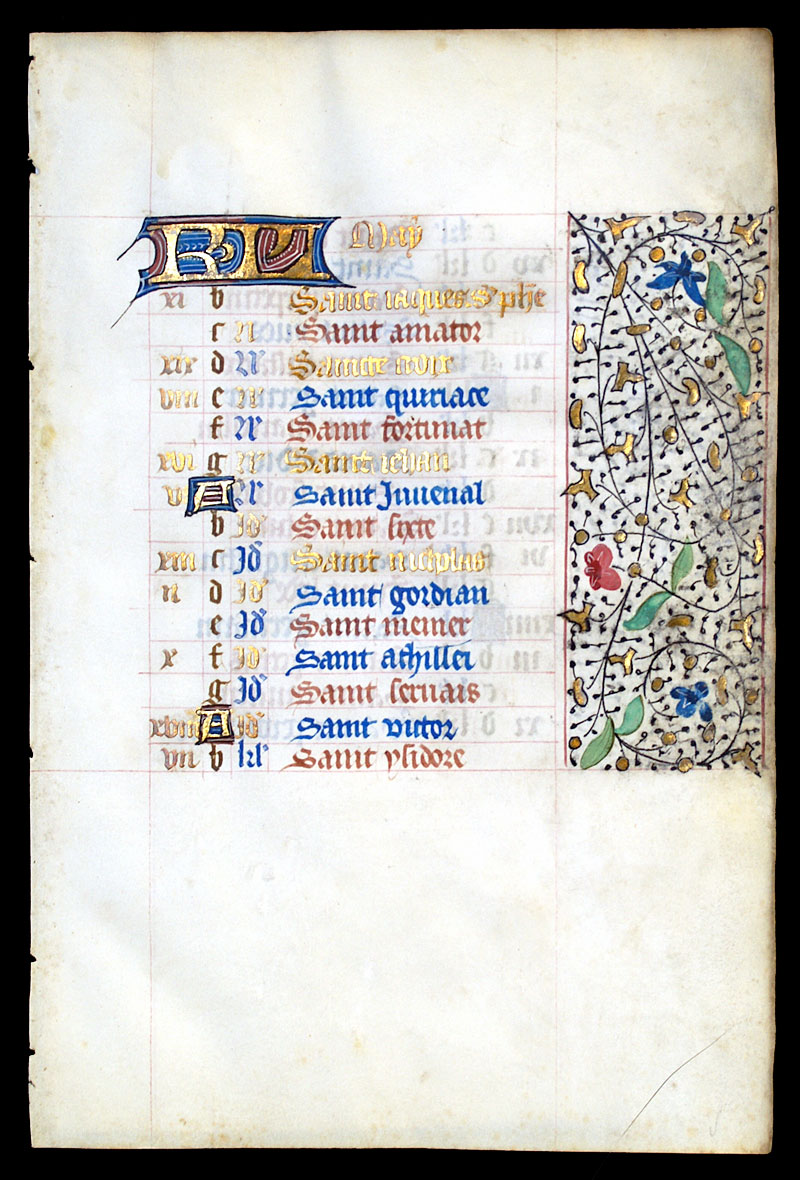 KL May
xi b Saint iaques. S phe
c N Saint amator
xix d N Saincte croix
viii e N Saint quiriace
f N Saint fortunat
xvi g N Saint iehan
v A N Saint Juvenal
b Id Saint sixte
xiii c Id Saint nicholas
ii d Id Saint gordian
e Id Saint
x f Id Saint achillei
g Id Saint servais
xviii A Id Saint victor
vii b kl Saint ysidore